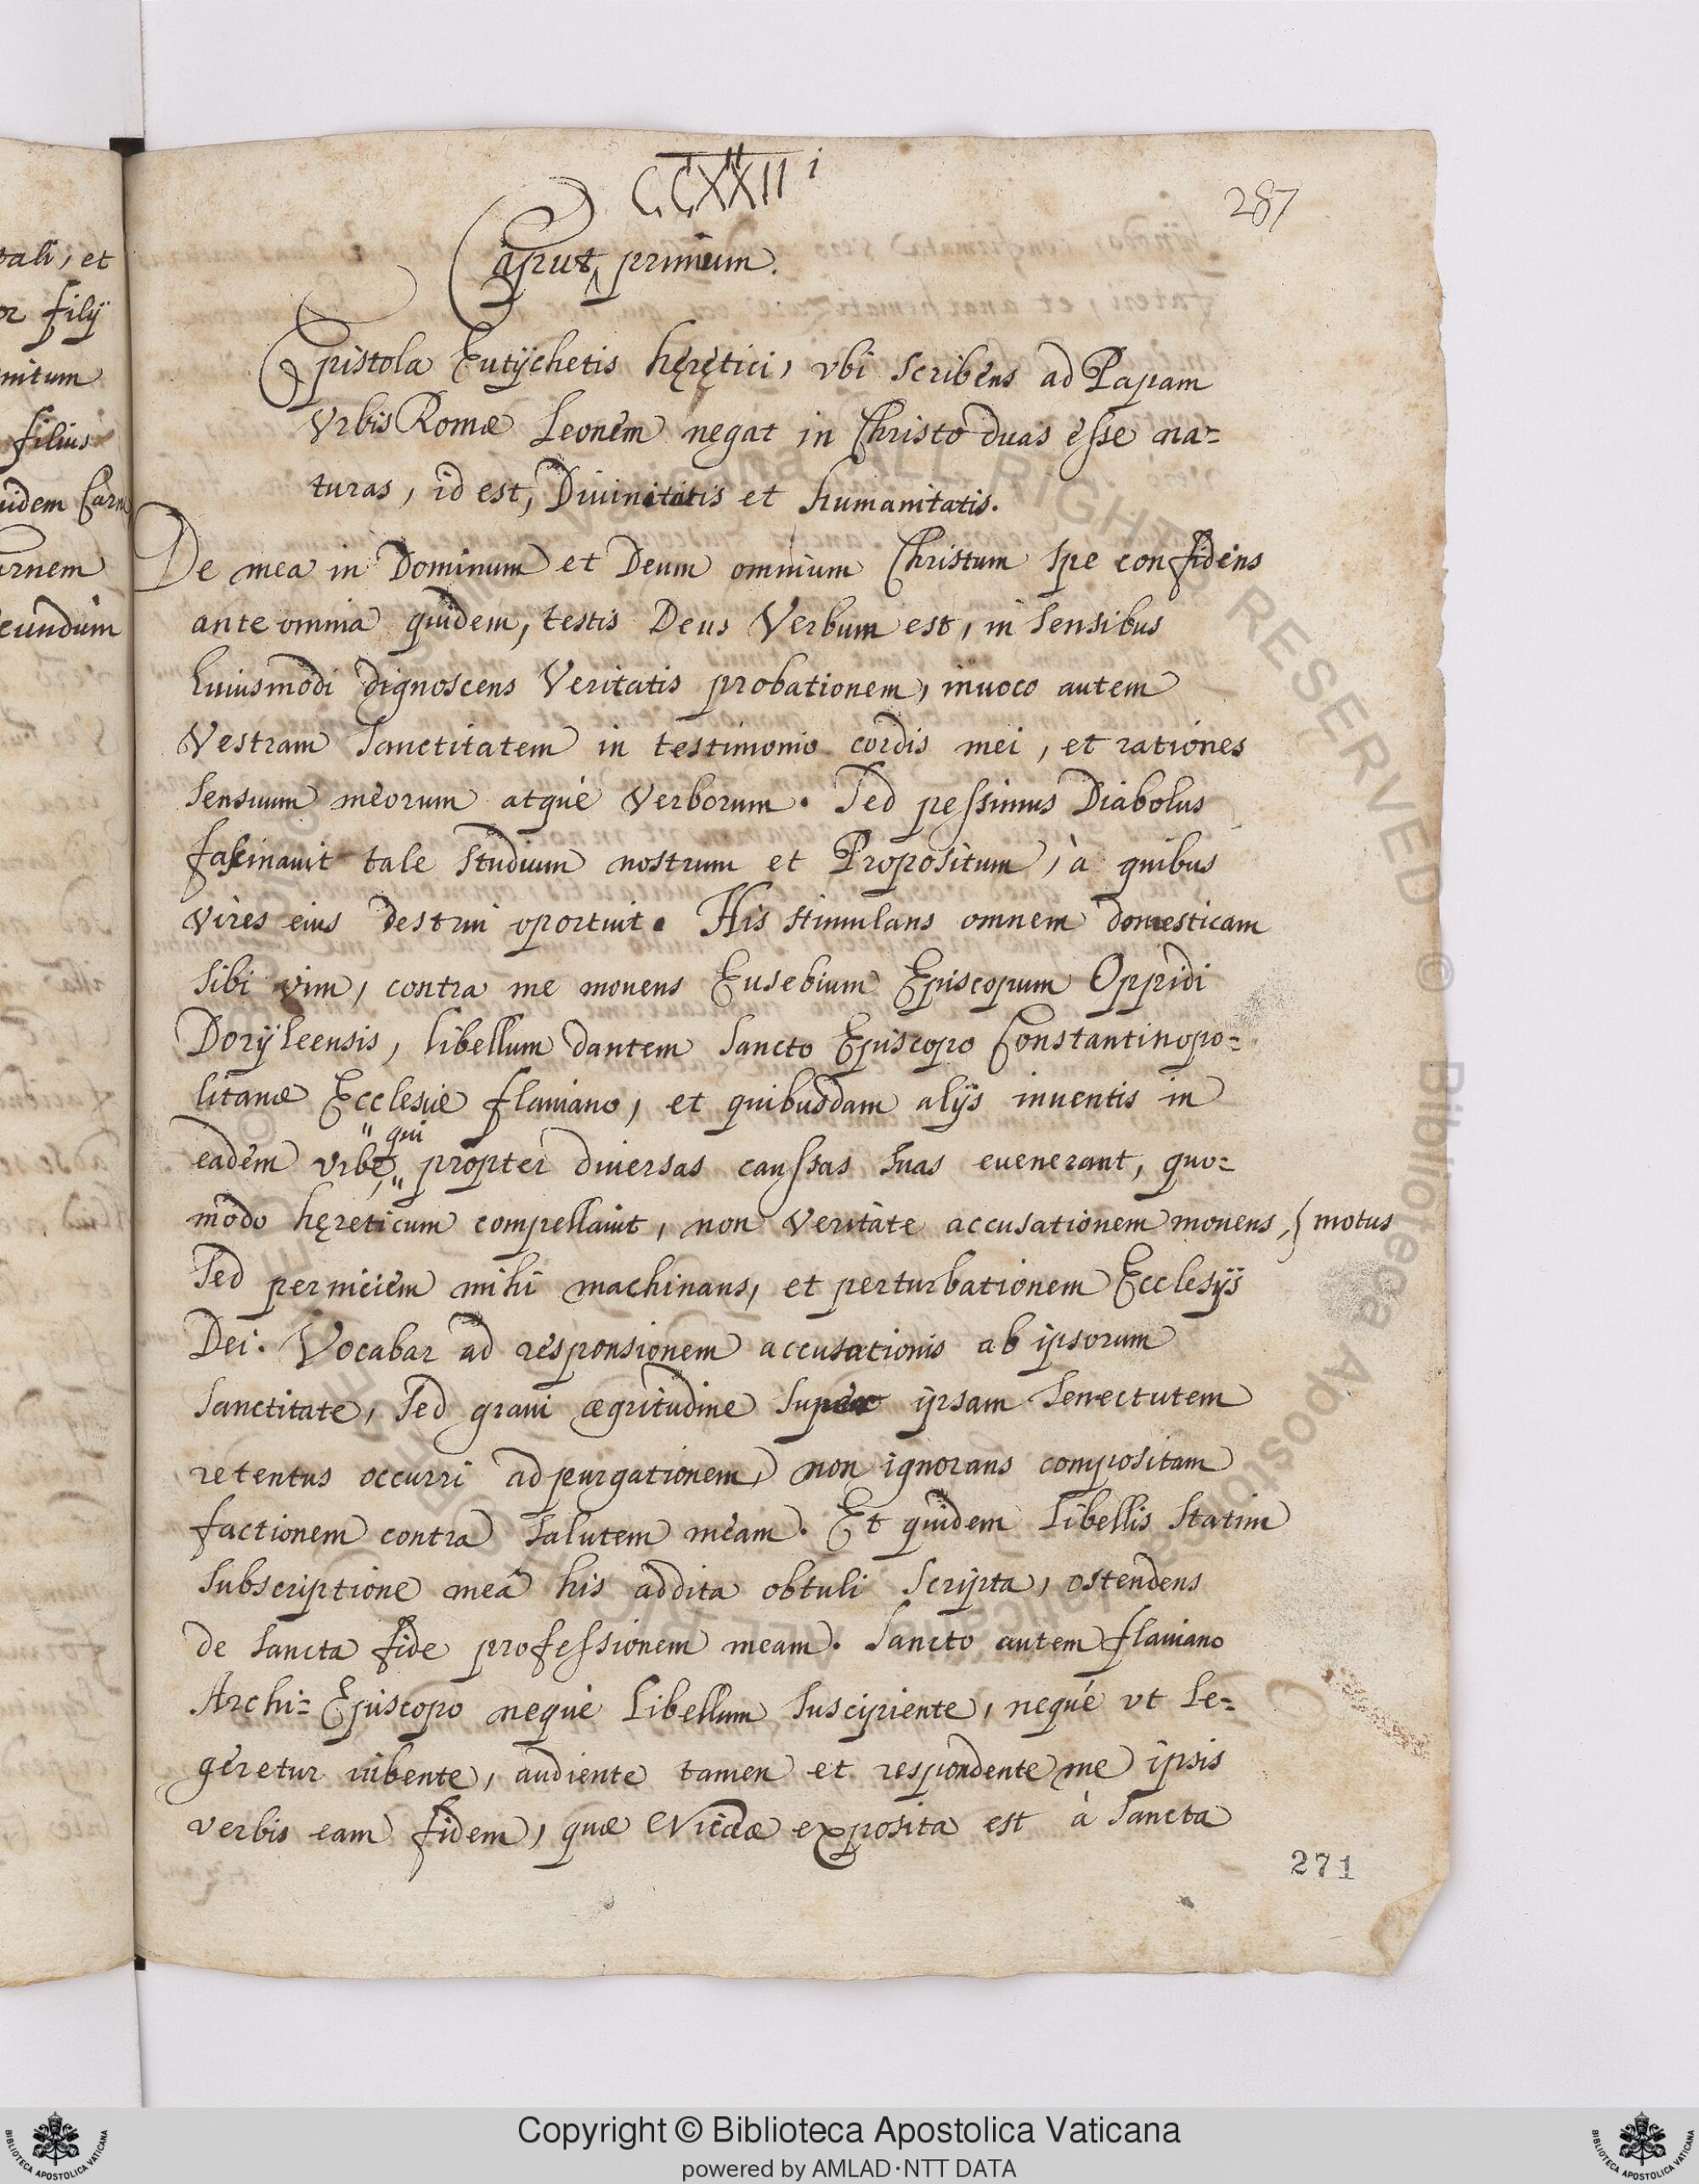 CCXXII i
287
Caput primum.
Epistola Eutÿchetis hęrętici, vbi scribens ad Papam
Vrbis Romæ Leonem negat in Christo duas esse na=
turas, id est, Diuinitatis et humanitatis.
De mea in Dominum et Deum omnium Christum spe confidens
ante omnia quidem, testis Deus Verbum est, in sensibus
huiusmodi dignoscens Veritatis probationem, inuoco autem
Vestram sanctitatem in testimonio cordis mei, et rationes
sensuum meorum atque verborum. Sed pessimus Diabolus
fascinauit tale studium nostrum et Propositum, à quibus
vires eius destrui oportuit. His stimulans omnem domesticam
sibi vim, contra me mouens Eusebium Episcopum Oppidi
Dorÿleensis, libellum dantem sancto Episcopo Constantinopo=
litanæ Ecclesiæ flauiano, et quibusdam alijs inuentis in
" qui
eadem vrbe," propter diuersas caussas suas euenerant, quo=
modo hęreticum compellauit, non veritate accusationem mouens, } motus
sed perniciem mihi machinans, et perturbationem Ecclesijs
Dei. Vocabar ad responsionem accusationis ab ipsorum
sanctitate, sed graui ægritudine super ipsam senectutem
retentus occurri ad purgationem, non ignorans compositam
factionem contra salutem meam. Et quidem libellis statim
subscriptione meâ his addita obtuli scripta, ostendens
de sancta fide professionem meam. Sancto autem flauiano
Archi=Episcopo neque libellum suscipiente, neque vt le=
geretur iubente, audiente tamen et respondente me ipsis
verbis eam fidem, quæ Nicææ exposita est à sancta
271
tali, et
or filij
nitum
filius
uidem Carn
arnem
ecundum
Copyright © Biblioteca Apostolica Vaticana
powered by AMLAD·NTT DATA